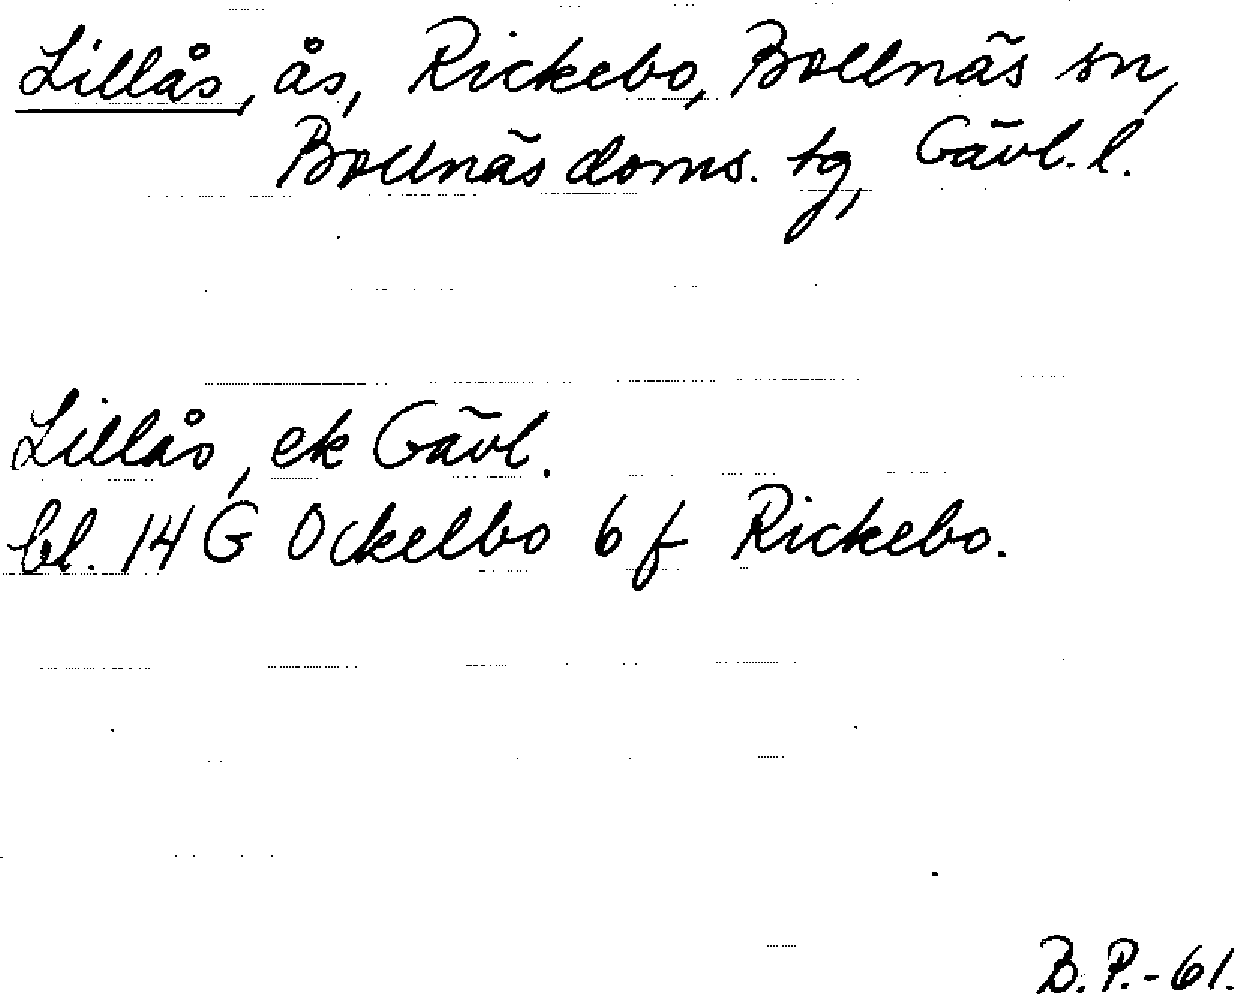 Lillås, ås, Rickebo, Bollnäs sn,
Bollnäs doms. tg, Gävl. l.
Lillås, ek Gävl.
bl. 14 G Ockelbo 6 f Rickebo.
B.P.-61.